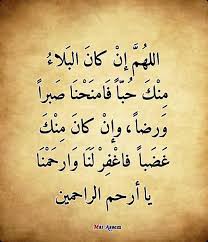 اللهُمَّ إنْ كَانَ البَلاءُ
مِنْكَ حُبّاً فَامنَحْنَا صَبراً
وَرِضاً، وإنْ كَانَ مِنْكَ
غَضَباً فاغْفِرْ لَنَا وَارحَمْنَا
يا أرحم الراحمين